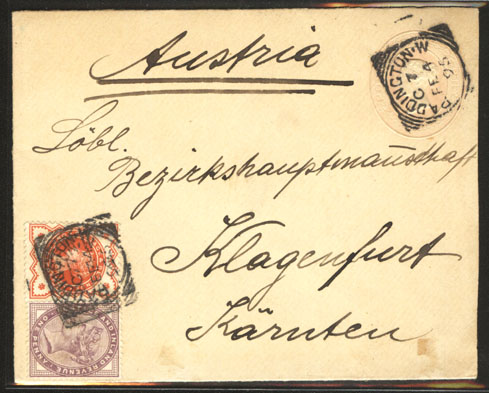 Austria
PADDINGTON·W
C 7
FE 4
95
Löbl.
Bezirkshauptmannschaft
Klagenfurt
Kärnten
INLAND REVENUE
ONE PENNY